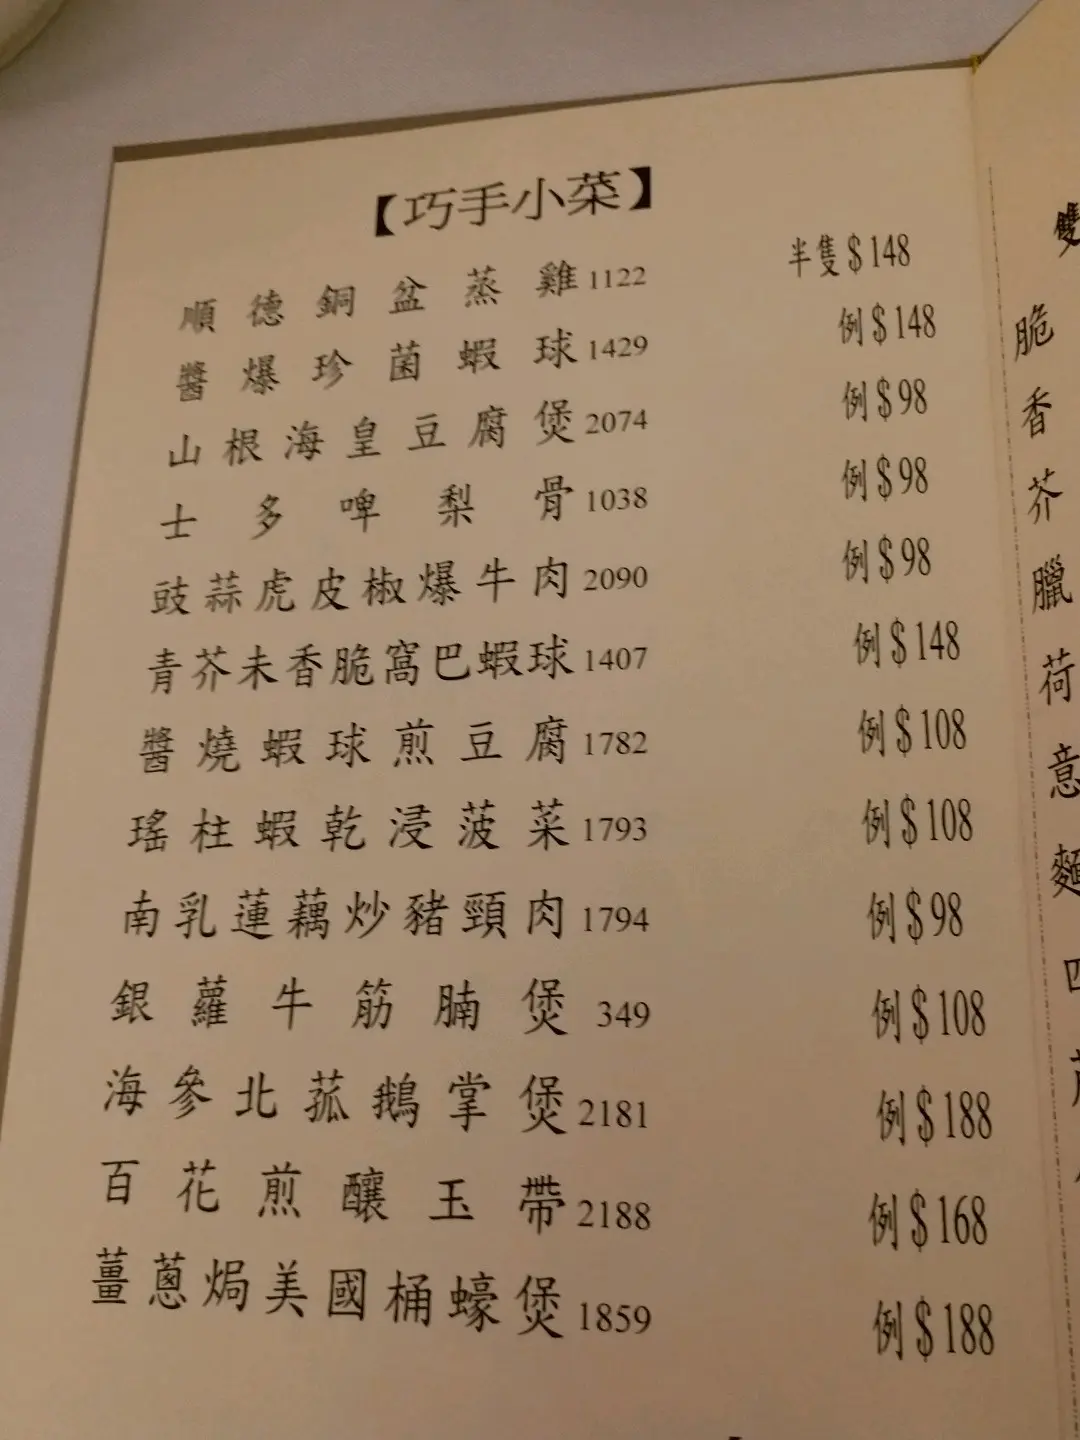 【巧手小菜】
順德銅盆蒸雞1122 半隻$148
醬爆珍菌蝦球1429 例$148
山根海皇豆腐煲2074 例$98
士多啤梨骨1038 例$98
豉蒜虎皮椒爆牛肉2090 例$98
青芥末香脆窩巴蝦球1407 例$148
醬燒蝦球煎豆腐1782 例$108
瑤柱蝦乾浸菠菜1793 例$108
南乳蓮藕炒豬頸肉1794 例$98
銀蘿牛筋腩煲 349 例$108
海參北菰鵝掌煲2181 例$188
百花煎釀玉帶2188 例$168
薑蔥焗美國桶蠔煲1859 例$188
雙
脆
香
芥
臘
荷
意
麵
四